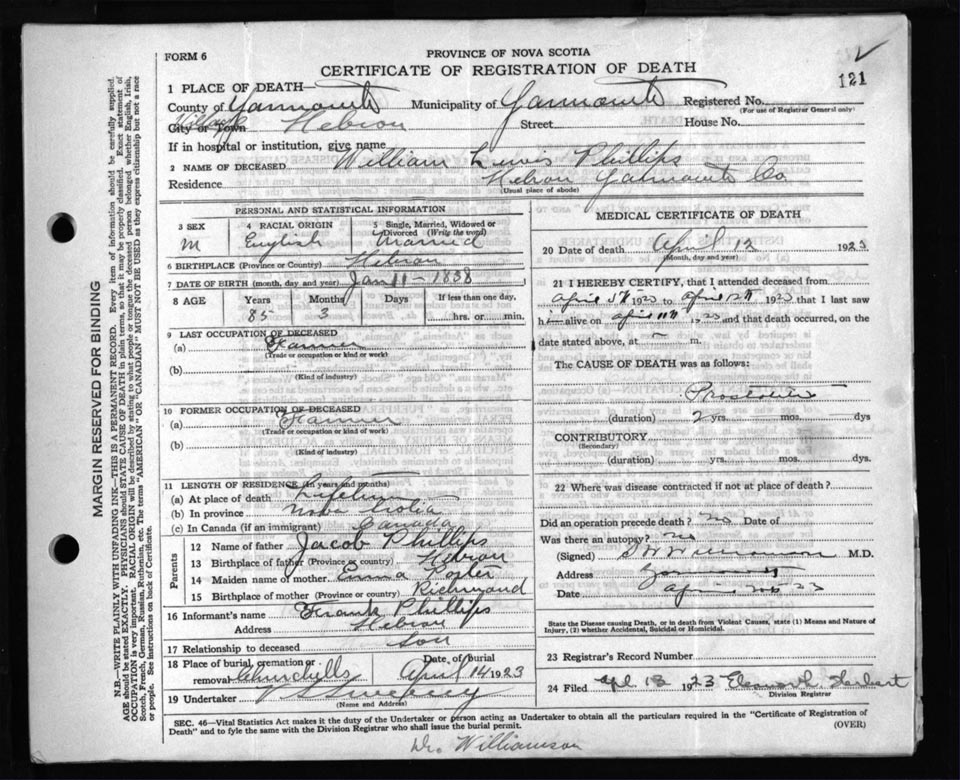 121
FORM 6
PROVINCE OF NOVA SCOTIA
CERTIFICATE OF REGISTRATION OF DEATH
1 PLACE OF DEATH
County of Yarmouth Municipality of Yarmouth Registered No.
(For use of Registrar General only)
Village
City or Town Hebron Street House No.
If in hospital or institution, give name
2 NAME OF DECEASED William Lewis Phillips
Residence Hebron Yarmouth Co
(Usual place of abode)
PERSONAL AND STATISTICAL INFORMATION
3 SEX 4 RACIAL ORIGIN 5 Single, Married, Widowed or Divorced (Write the word)
M English Married
6 BIRTHPLACE (Province or Country) Hebron
7 DATE OF BIRTH (month, day and year) Jan 11 - 1838
8 AGE Years Months Days If less than one day,
85 3 hrs. or min.
9 LAST OCCUPATION OF DECEASED
(a) Farmer
(Trade or occupation or kind or work)
(b)
(Kind of industry)
10 FORMER OCCUPATION OF DECEASED
(a) Farmer
(Trade or occupation or kind or work)
(b)
(Kind of industry)
11 LENGTH OF RESIDENCE (in years and months)
(a) At place of death Lifetime
(b) In province Nova Scotia
(c) In Canada (if an immigrant) Canada
Parents
12 Name of father Jacob Phillips
13 Birthplace of father (Province or country) Hebron
14 Maiden name of mother Emma Porter
15 Birthplace of mother (Province or country) Richmond
16 Informant's name Frank Phillips
Address Hebron
17 Relationship to deceased Son
18 Place of burial, cremation or removal Churchills Date of burial April 14 1923
19 Undertaker V S Sweeney
(Name and Address)
MEDICAL CERTIFICATE OF DEATH
20 Date of death April 12 1923
(Month, day and year)
21 I HEREBY CERTIFY, that I attended deceased from
April 5th 1923 to April 12th 1923 that I last saw
him alive on April 11th 1923 and that death occurred, on the
date stated above, at - m.
The CAUSE OF DEATH was as follows:
(duration) 2 yrs. mos. dys
CONTRIBUTORY
(Secondary)
(duration) yrs. mos. dys.
22 Where was disease contracted if not at place of death?
Did an operation precede death? no Date of
Was there an autopsy? no
(Signed) Williamson M.D.
Address Yarmouth
Date April 23
State the Disease causing Death, or in death from Violent Causes, state (1) Means and Nature of
Injury, (2) whether Accidental, Suicidal or Homicidal.
23 Registrar's Record Number
24 Filed Apl. 13 1923 Herbert
Division Registrar
SEC. 46—Vital Statistics Act makes it the duty of the Undertaker or person acting as Undertaker to obtain all the particulars required in the "Certificate of Registration of
Death" and to fyle the same with the Division Registrar who shall issue the burial permit. (OVER)
Dr. Williamson
MARGIN RESERVED FOR BINDING
N.B.—WRITE PLAINLY WITH UNFADING INK—THIS IS A PERMANENT RECORD. Every item of information should be carefully supplied.
AGE should be stated EXACTLY. PHYSICIANS should STATE CAUSE OF DEATH in plain terms, so that it may be properly classified. Exact statement of
OCCUPATION is very important. RACIAL ORIGIN will be described by stating to what people or tongue the deceased person belonged whether English, Irish,
Scotch, French, German, Russian, Ruthenian, etc. The terms "AMERICAN" OR "CANADIAN" MUST NOT BE USED as they express citizenship but not a race
or people. See instructions on back of Certificate.